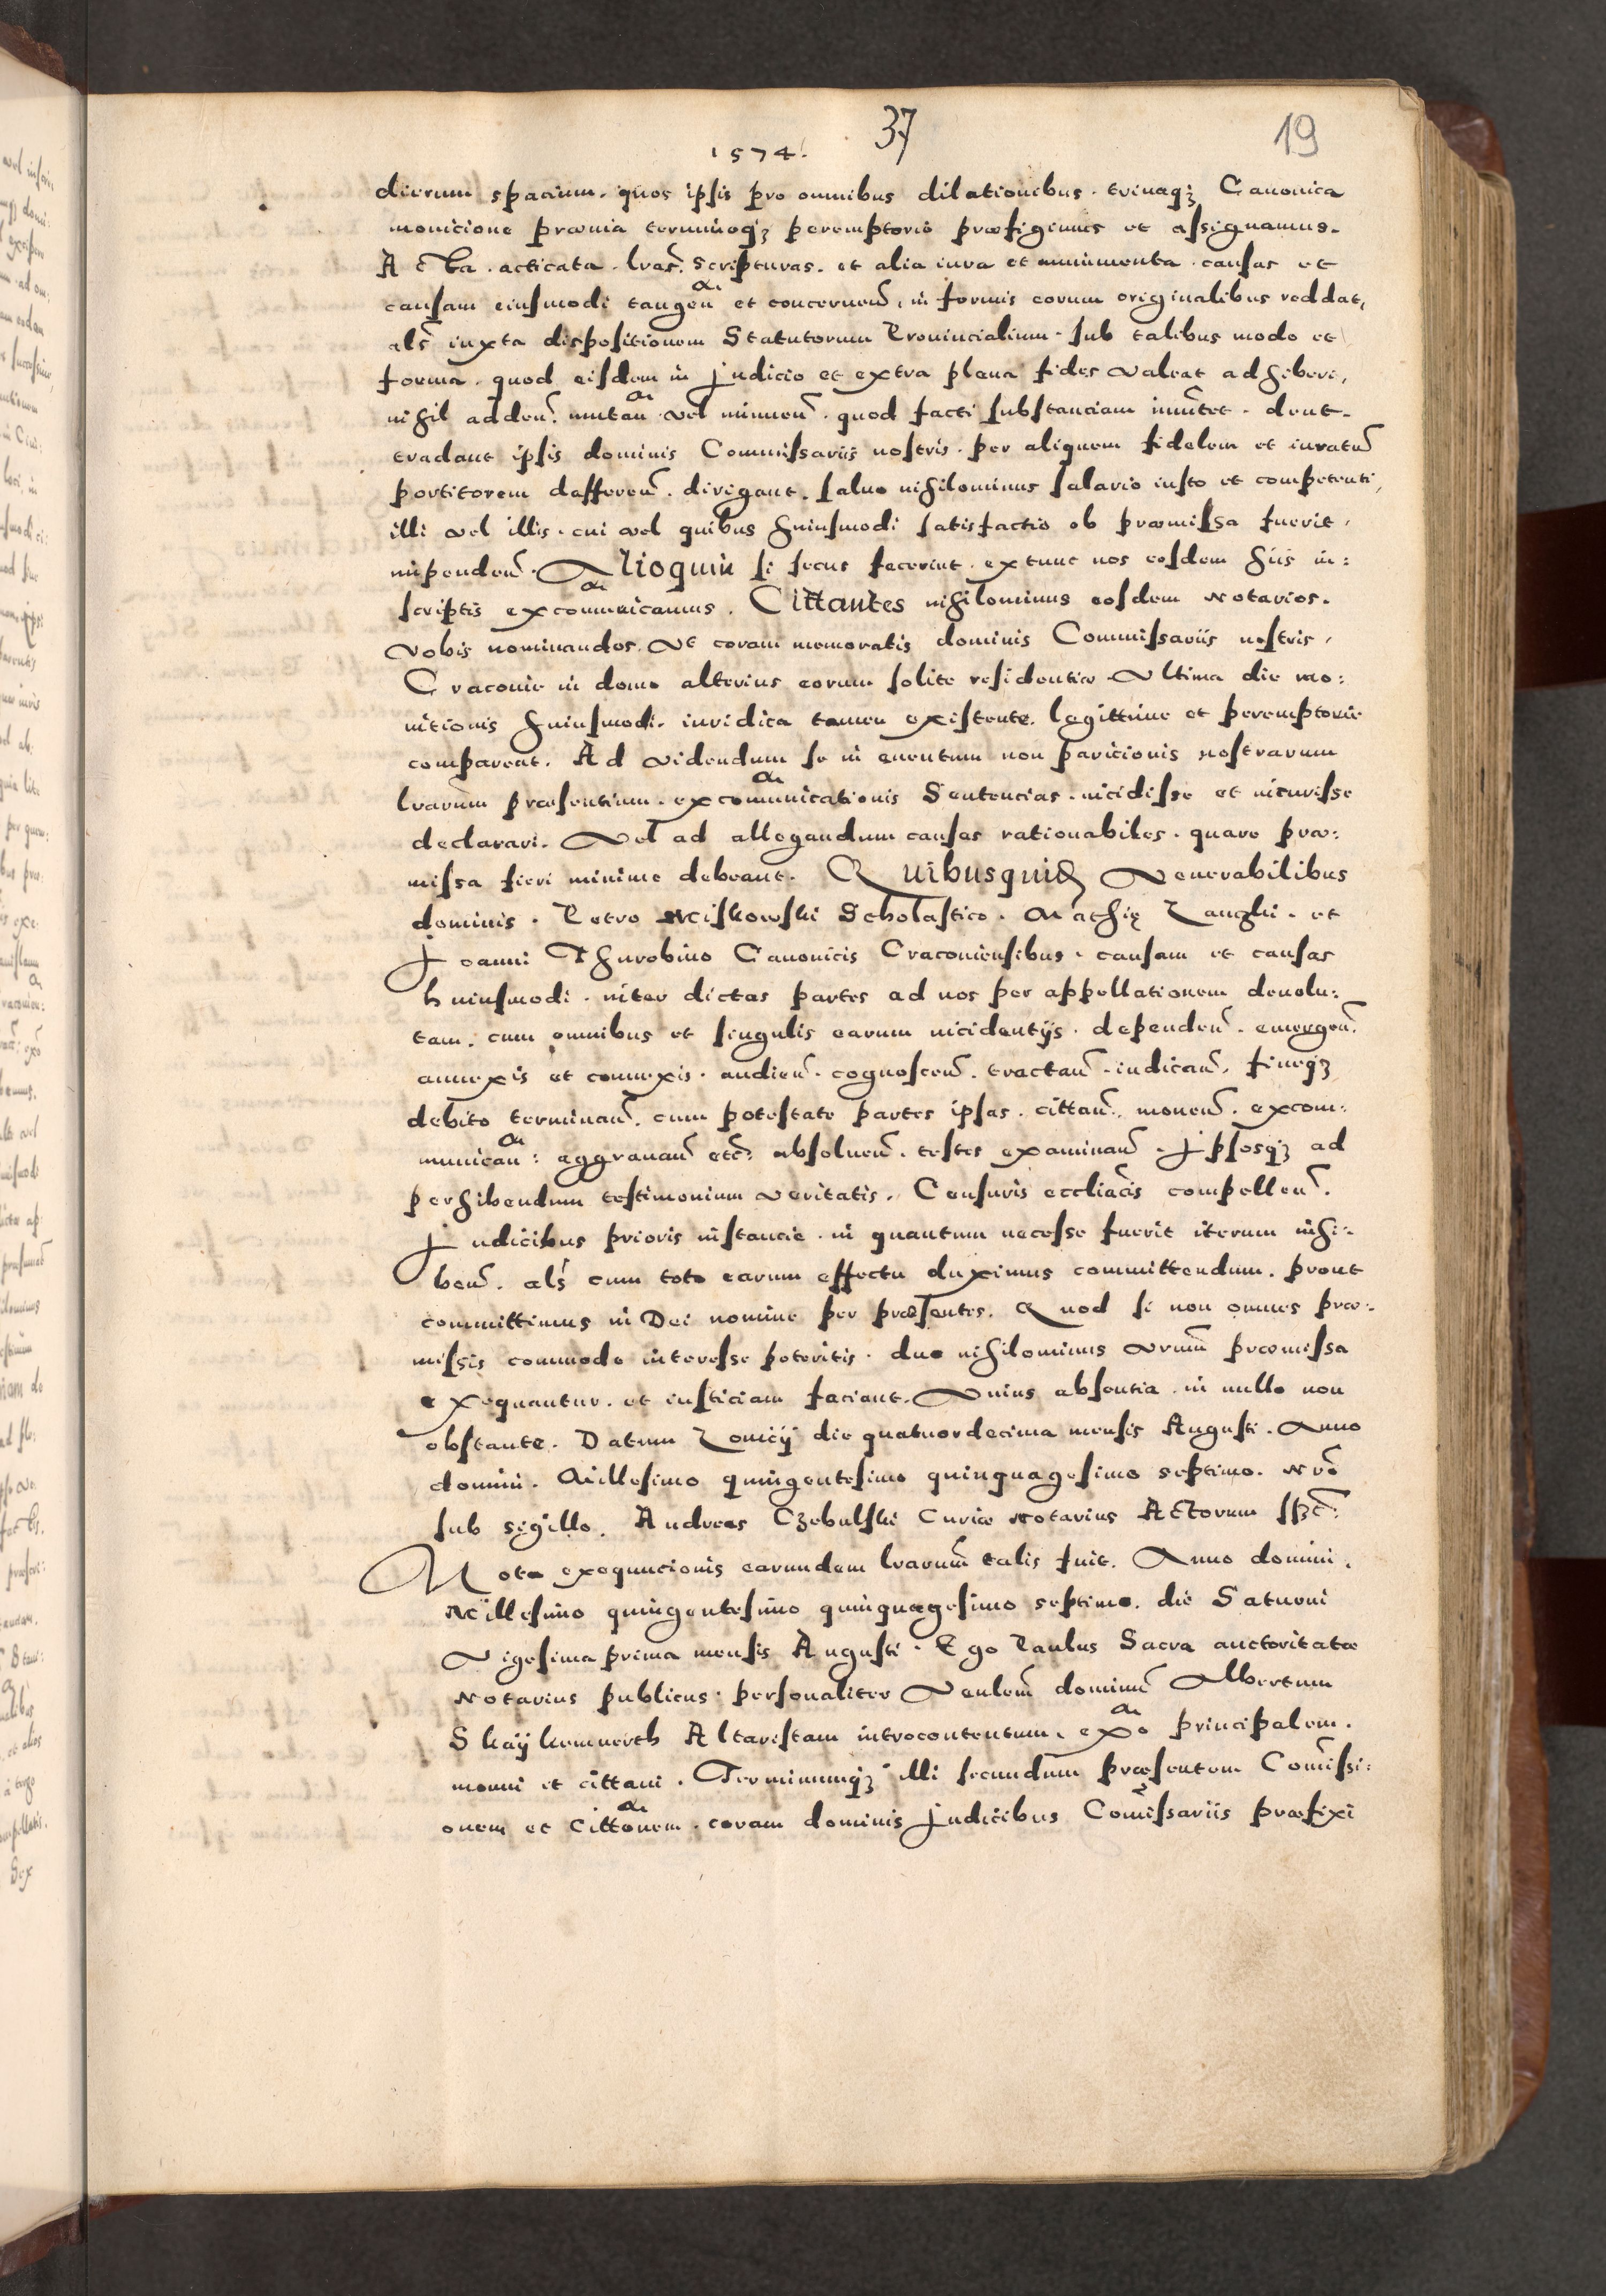 37
19
1574.
dierum spacium. quos ipsis pro omnibus dilationibus. trinaqꝫ Canonica
monicione prævia terminoqꝫ peremptorio præfigimus et assignamus.
Acta. acticata. lrās. scripturas. et alia iura et munimenta. causas et
causam eiusmodi tangen̄ et concernen̄. in formis eorum originalibus reddat,
als̄ iuxta dispositionem Statutorum Provincialium. sub talibus modo et
forma. quod eisdem in judicio et extra plena fides valeat adhiberi,
nihil adden̄. mutan̄ vel minuen̄. quod facti substanciam immutet. dent.
tradant ipsis dominis Commissariis nostris. per aliquem fidelem et iuratū
portitorem dafferen̄. dirigant. salvo nihilominus salario iusto et competenti,
illi vel illis. cui vel quibus huiusmodi satisfactio ob præmissa fuerit,
impenden̄. Alioquin si secus fecerint. extunc nos eosdem hiis in:
scriptis excommunicamus. Cittantes nihilominus eosdem Notarios.
Vobis nominandos. Ut coram memoratis dominis Commissariis nostris,
Cracovie in domo alterius eorum solite residentiæ. Ultima die mo:
nitionis huiusmodi. iuridica tamen existente. legittime et peremptorie
compareat. Ad videndum se in eventum non paricionis nostrarum
lrarum̄ præsentium. excommunicationis Sentencias. incidisse et incurisse
declarari. Vel ad allegandum causas rationabiles. quare præ:
missa fieri minime debeant. Quibusquid Venerabilibus
dominis. Petro Miskowski Scholastico. Mathię Zanghi. et
Joanni Thurobino Canonicis Cracoviensibus. causam et causas
huiusmodi. inter dictas partes ad nos per appellationem devolu:
tam. cum omnibus et singulis earum incidentijs. dependen̄. emergen̄.
annexis et connexis. audien̄. cognoscen̄. tractan̄. iudican̄. fineqꝫ
debito terminan̄. cum potestate partes ipsas. cittan̄. monen̄. excom:
munican̄: aggravan̄ etc̄: absolven̄. testes examinan̄. Ipsosqꝫ ad
perhibendum testimonium veritatis. Censuris eccliācis compellen̄.
Judicibus prioris instancie. in quantum necesse fuerit iterum inhi:
ben̄. als̄ cum toto earum effectu duximus committendum. prout
committimus in Dei nomine per præsentes. Quod si non omnes præ:
missis commode interesse poteritis. duo nihilominus vrum̄ præmissa
exequantur. et iusticiam faciant. Unius absentia in nullo non
obstante. Datum Lovicij die quatuordecima mensis Augusti. Anno
domini. Millesimo quingentesimo quinquagesimo septimo. Nrō
sub sigillo. Andreas Czebulski Curiæ Notarius Actorum sꝑt̄:
Nota exequucionis earundem lrarum̄ talis fuit. Anno domini.
Millesimo quingentesimo quinquagesimo septimo. die Saturni
Vigesima prima mensis Augusti. Ego Paulus Sacra auctoritate
Notarius publicus. personaliter Venlem̄ dominū Albertum
Skaykemnerth Altaristam introcontentum. ex̄o principalem.
monui et cittavi. Terminumqꝫ illi secundum præsentem Comissi:
onem et Cittonem. coram dominis Judicibus Comissariis præfixi